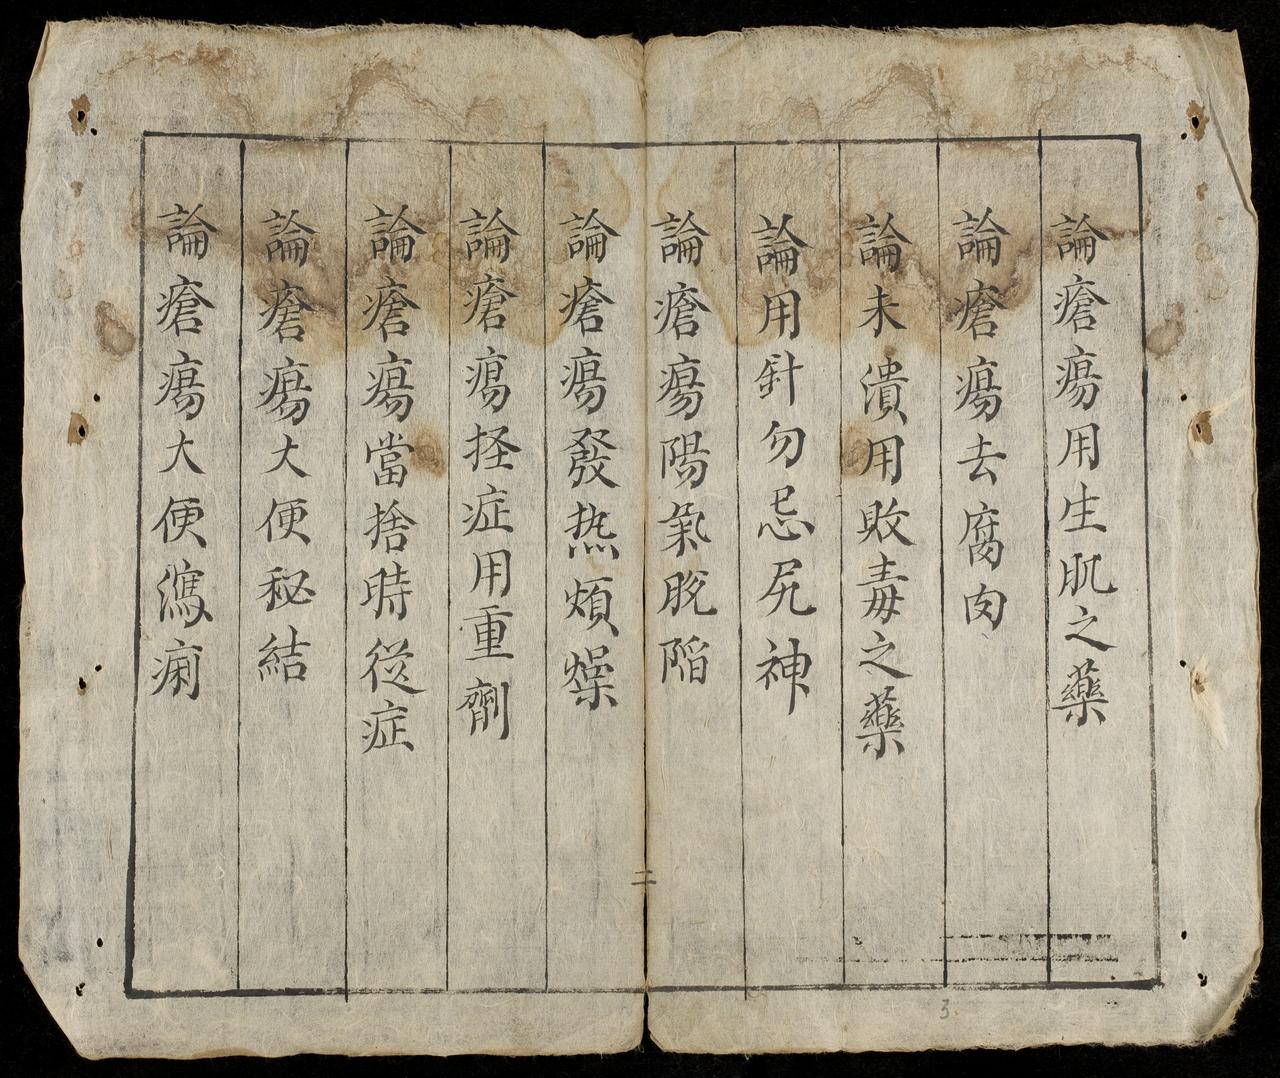 論瘡瘍用生肌之藥
論瘡瘍去腐肉
論未潰用敗毒之藥
論用針勿忌尻神
論瘡瘍陽氣脫陷
二
論瘡瘍發热煩燥
論瘡瘍挃症用重劑
論瘡瘍當捨時從症
論瘡瘍大便秘結
論瘡瘍大便瀉痢
3